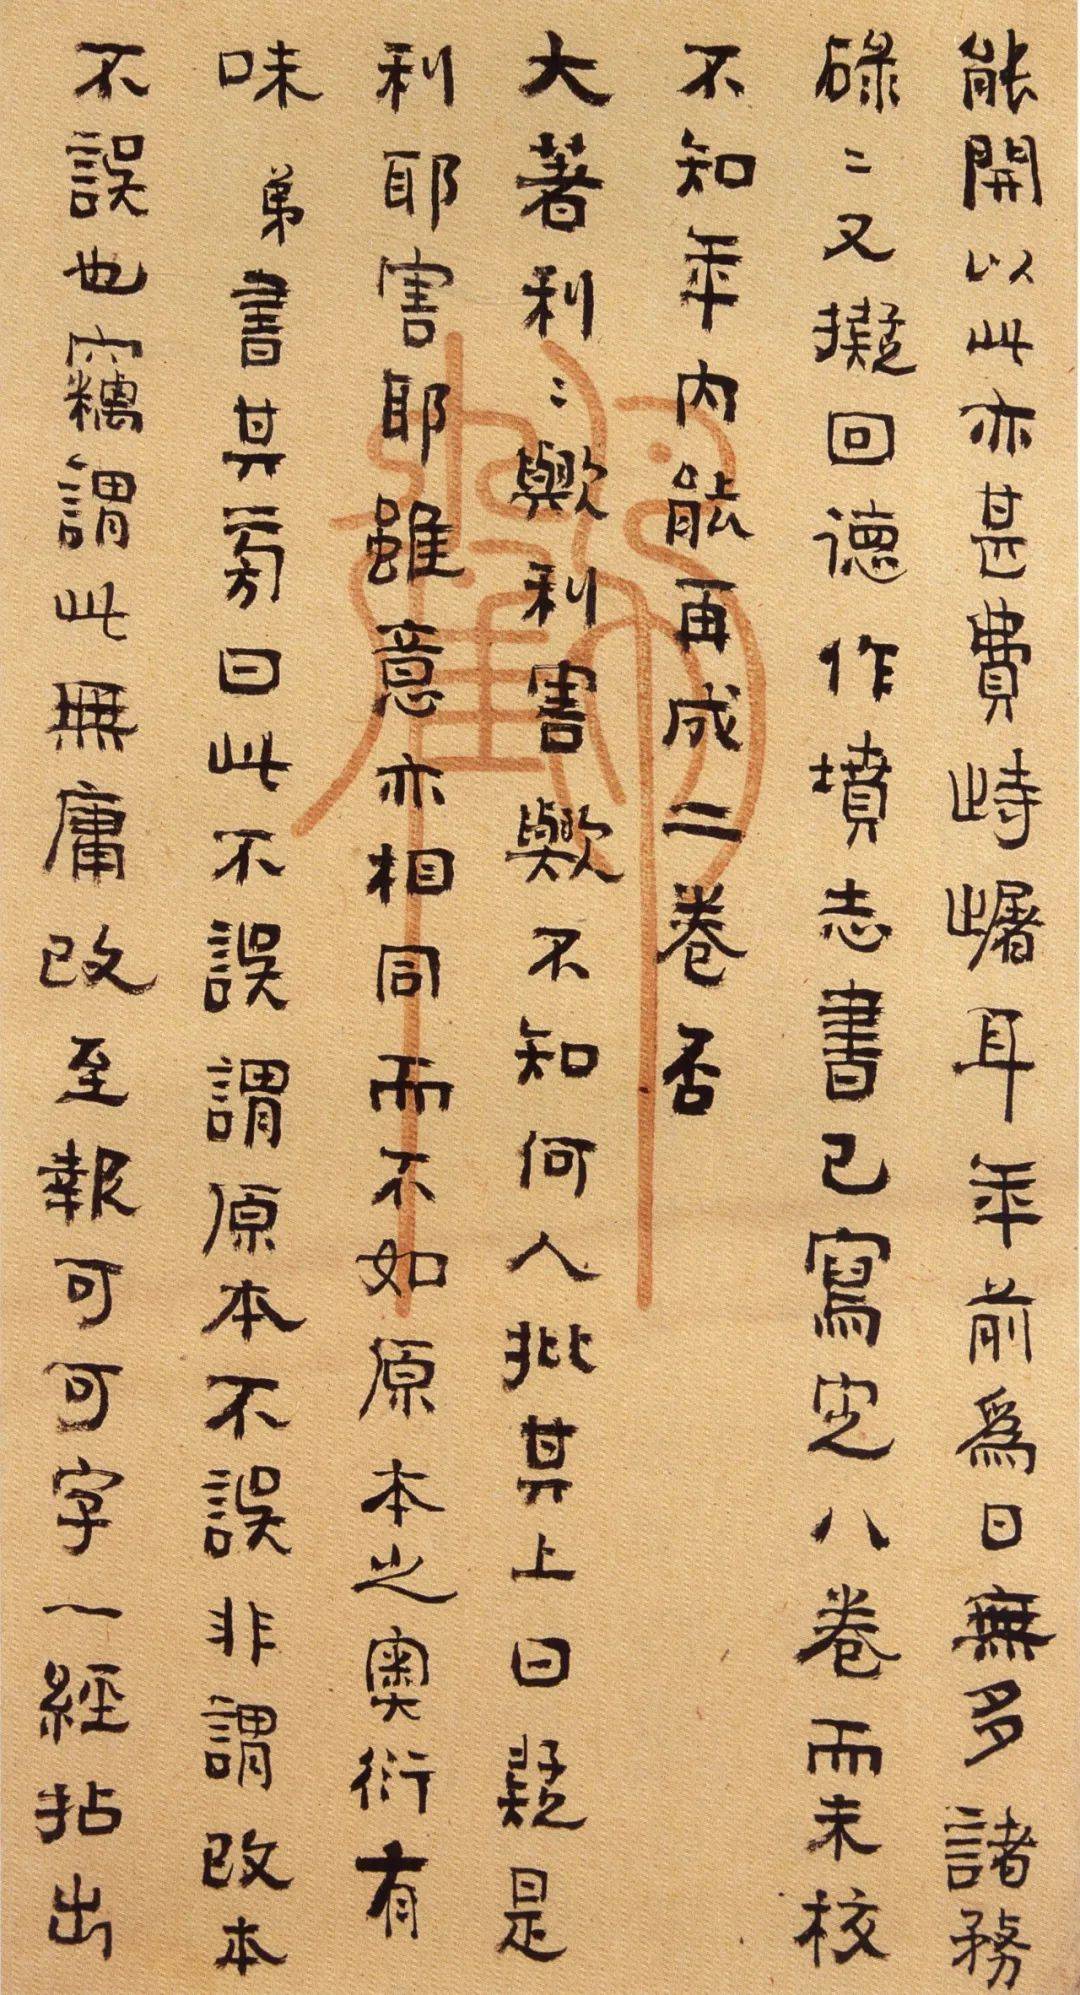 能開以此亦甚費峙𡹬耳年前為日無多諸務
碌〻又擬回德作墳志書已寫定八卷而未校
不知年內能再成二卷否
大著利〻歟利害歟不知何人批其上曰疑是
利耶害耶雖意亦相同而不如原本之奧衍有
味弟書其旁曰此不誤謂原本不誤非謂改本
不誤也竊謂此無庸改至報可可字一經拈出